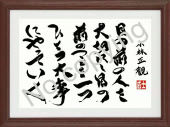 小林正観
目の前の人を
大切に目の
前のひとつ
ひとつ大事
にやっていく